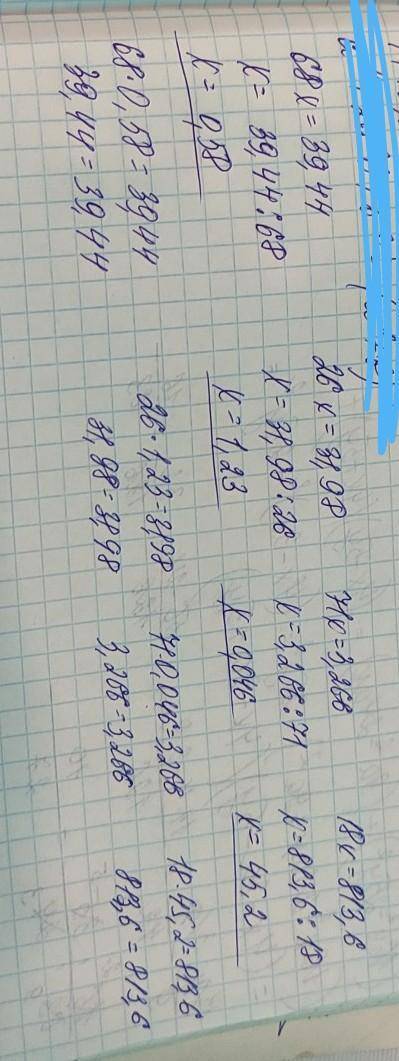 68x = 39,44
x = 39,44:68
x = 0,58
68·0,58 = 39,44
39,44 = 39,44
26x = 31,98
x = 31,98:26
x = 1,23
26·1,23=31,98
31,98=31,98
71x=3,266
x=3,266:71
x=0,046
71·0,046=3,266
3,266=3,266
18x=813,6
x=813,6:18
x=45,2
18·45,2=813,6
813,6 = 813,6